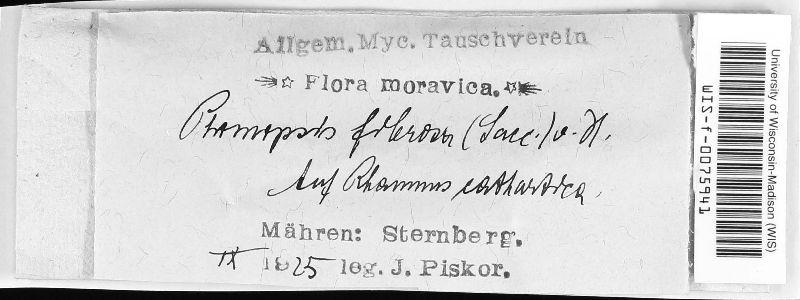 Allgem. Myc. Tauschverein
Flora moravica.
Phomopsis fibrosa (Sacc.) v. H.
Auf Rhamnus cathartica.
Mähren: Sternberg.
IX 1925 leg. J. Piskor.
University of Wisconsin-Madison (WIS)
WIS-f-0075941